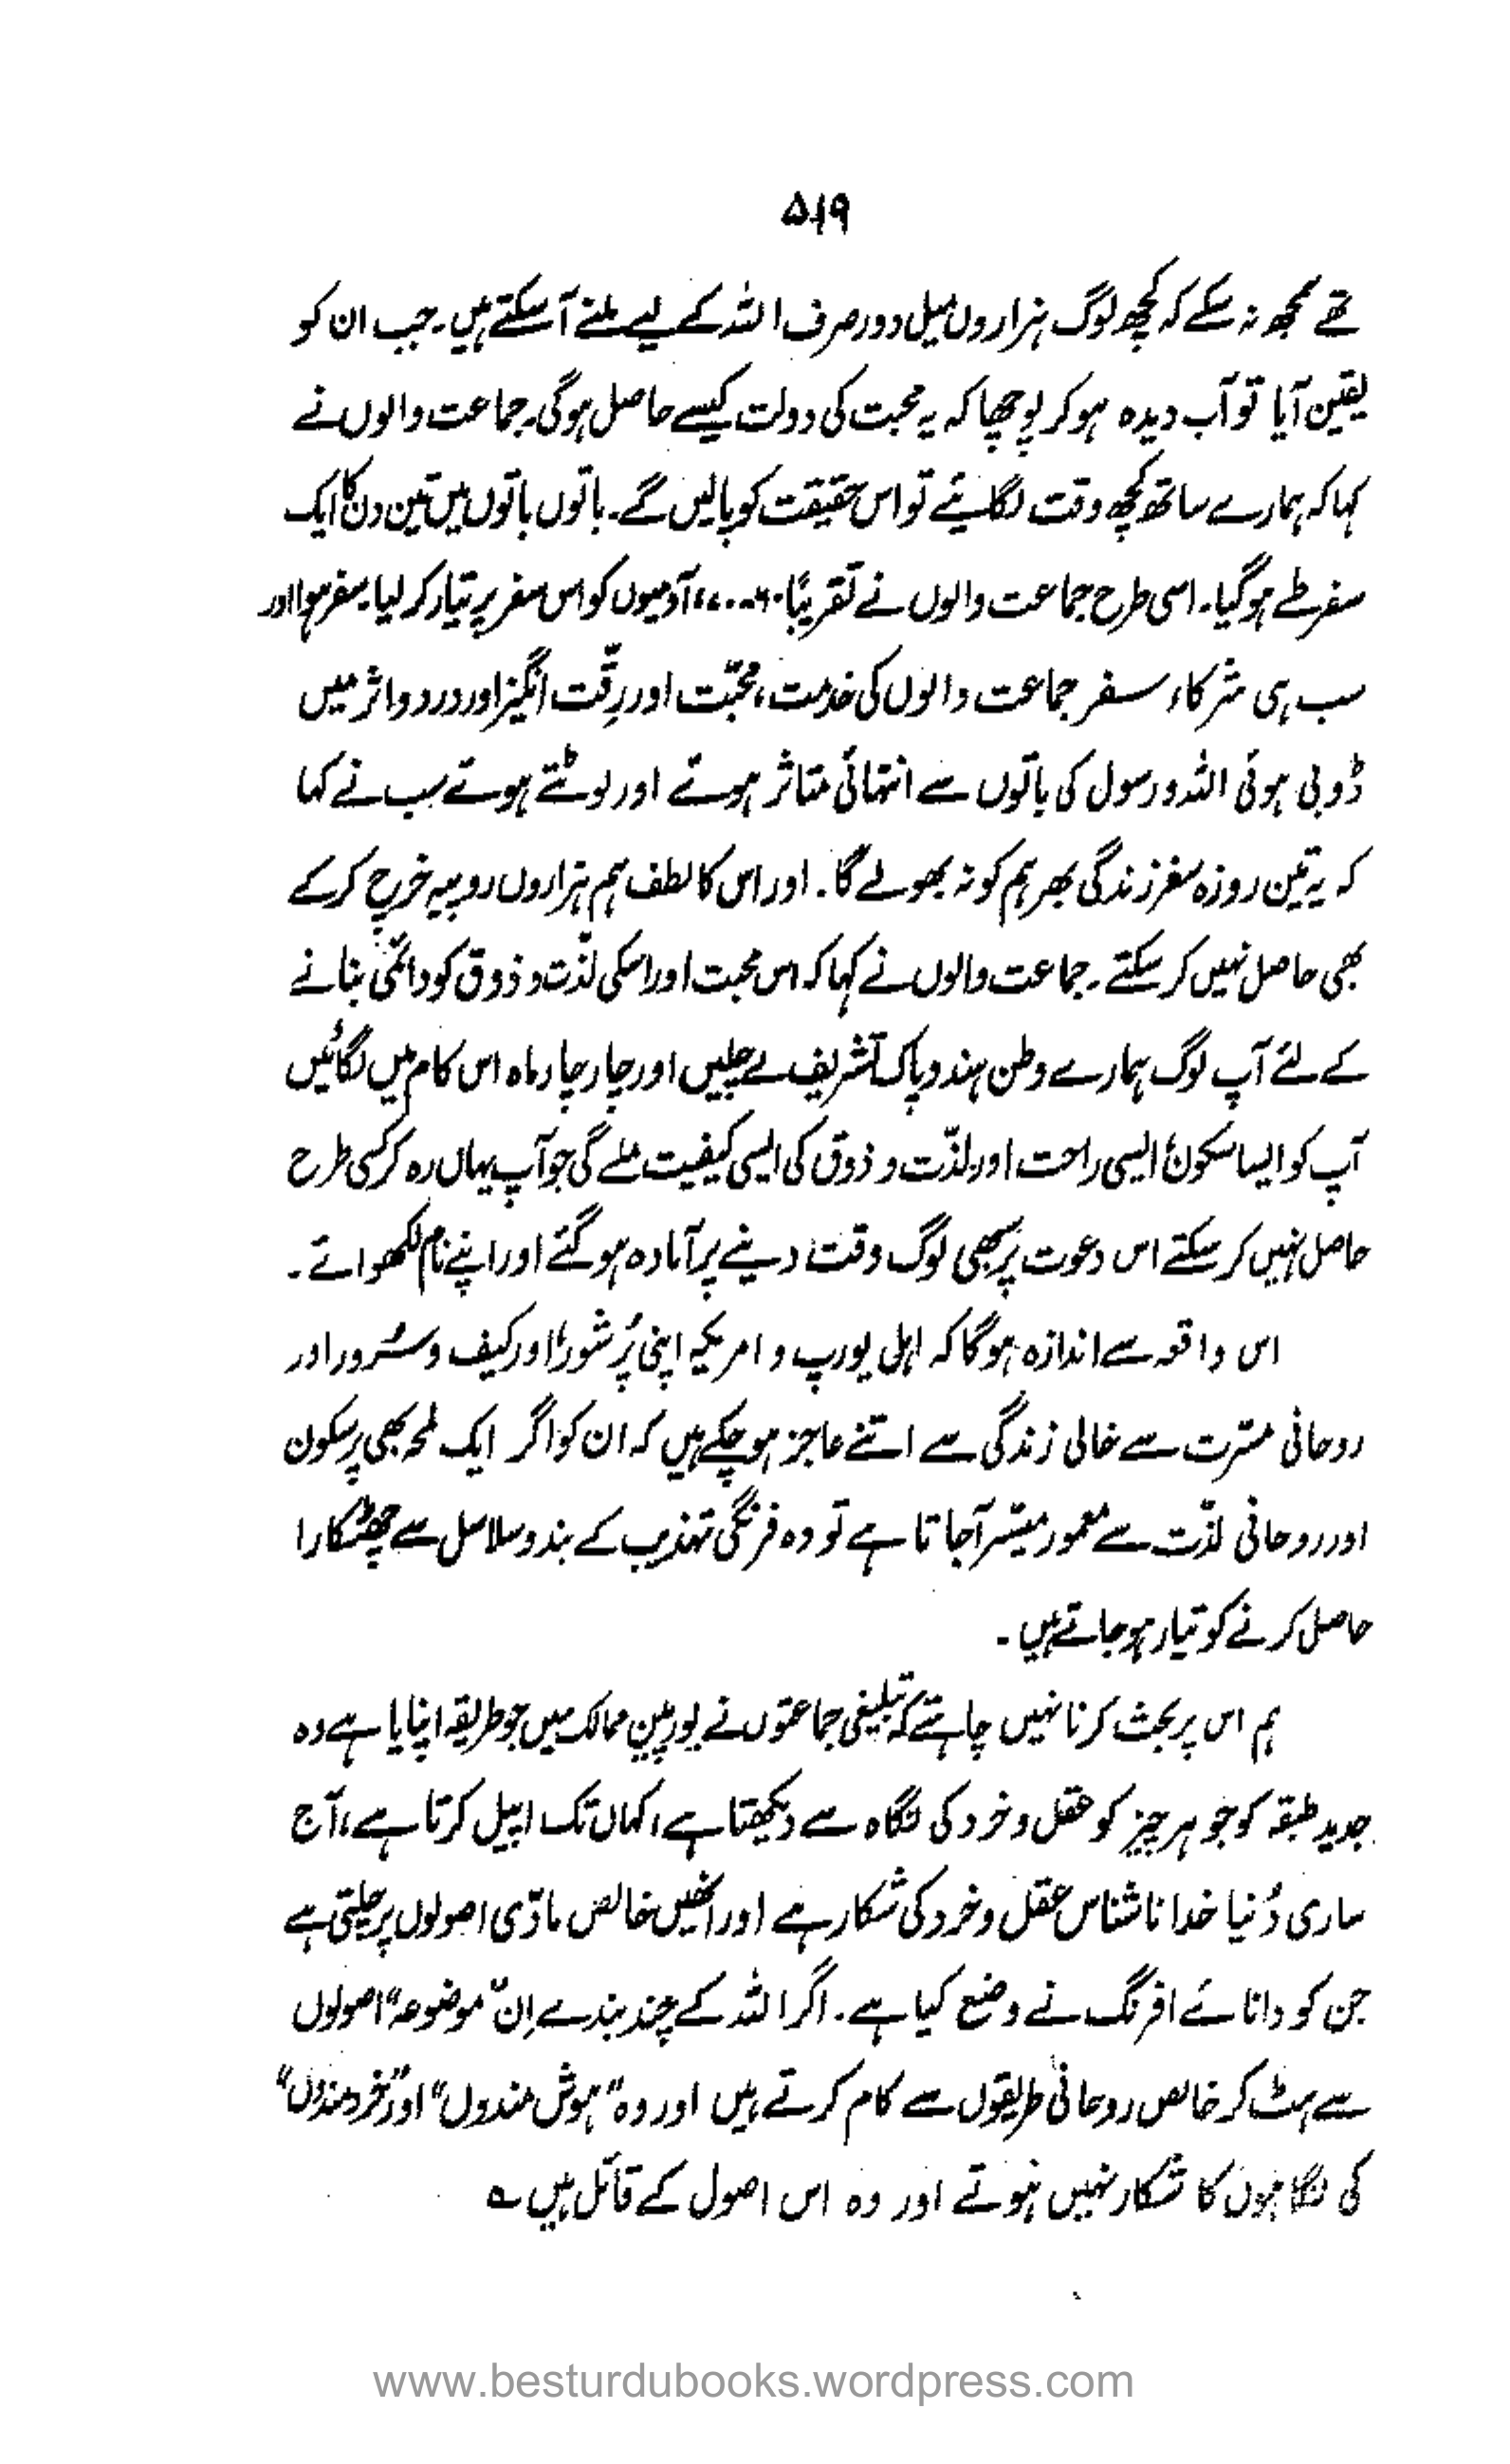 ۵۱۹
تھے سمجھ نہ سکے کہ کچھ لوگ ہزاروں میل دور صرف اللہ کے لیے ملنے آسکتے ہیں۔ جب ان کو
یقین آیا تو آب دیدہ ہو کر پوچھا کہ یہ محبت کی دولت کیسے حاصل ہوگی۔ جماعت والوں نے
کہا کہ ہمارے ساتھ کچھ وقت لگائیے تو اس حقیقت کو پالیں گے۔ باتوں باتوں میں تین دن کا ایک
سفر طے ہوگیا۔ اسی طرح جماعت والوں نے تقریبًا ۶۰، ۷۰ آدمیوں کو اس سفر پر تیار کر لیا۔ سفر ہوا اور
سب ہی شرکاء سفر جماعت والوں کی خدمت، محبّت اور رِقّت انگیز اور درد و اثر میں
ڈوبی ہوئی اللہ و رسول کی باتوں سے انتہائی متاثر ہوئے اور لوٹتے ہوئے سب نے کہا
کہ یہ تین روزہ سفر زندگی بھر ہم کو نہ بھولے گا۔ اور اس کا لطف ہم ہزاروں روپیہ خرچ کرکے
بھی حاصل نہیں کر سکتے۔ جماعت والوں نے کہا کہ اس محبت اور اسکی لذّت و ذوق کو دائمی بنانے
کے لئے آپ لوگ ہمارے وطن ہند و پاک تشریف لے چلیں اور چار چار ماہ اس کام میں لگائیں
آپ کو ایسا سکون، ایسی راحت اور لذّت و ذوق کی ایسی کیفیت ملے گی جو آپ یہاں رہ کر کسی طرح
حاصل نہیں کر سکتے اس دعوت پر سبھی لوگ وقت دینے پر آمادہ ہو گئے اور اپنے نام لکھوائے۔
اس واقعہ سے اندازہ ہوگا کہ اہلِ یورپ و امریکہ اپنی پُر شور، اور کیف و سُرور اور
روحانی مسّرت سے خالی زندگی سے اتنے عاجز ہو چکے ہیں کہ ان کو اگر ایک لمحہ بھی پر سکون
اور روحانی لذّت سے معمور میسّر آجاتا ہے تو وہ فرنگی تہذیب کے بند و سلاسل سے چھٹکارا
حاصل کرنے کو تیار ہو جاتے ہیں۔
ہم اس پر بحث کرنا نہیں چاہتے کہ تبلیغی جماعتوں نے یورپین ممالک میں جو طریقہ اپنایا ہے وہ
جدید طبقہ کو جو ہر چیز کو عقل و خرد کی نگاہ سے دیکھتا ہے، کہاں تک اپیل کرتا ہے، آج
ساری دُنیا خدا ناشناس عقل و خرد کی شکار ہے اور انھیں خالص مادّی اصولوں پر چلتی ہے
جن کو دانائے افرنگ نے وضع کیا ہے۔ اگر اللہ کے چند بندے اِن "موضوعہ" اصولوں
سے ہٹ کر خالص روحانی طریقوں سے کام کرتے ہیں اور وہ "ہوش مندوں" اور "خرد مندوں"
کی نگاہوں کا شکار نہیں ہوتے اور وہ اس اصول کے قائل ہیں ؎
www.besturdubooks.wordpress.com